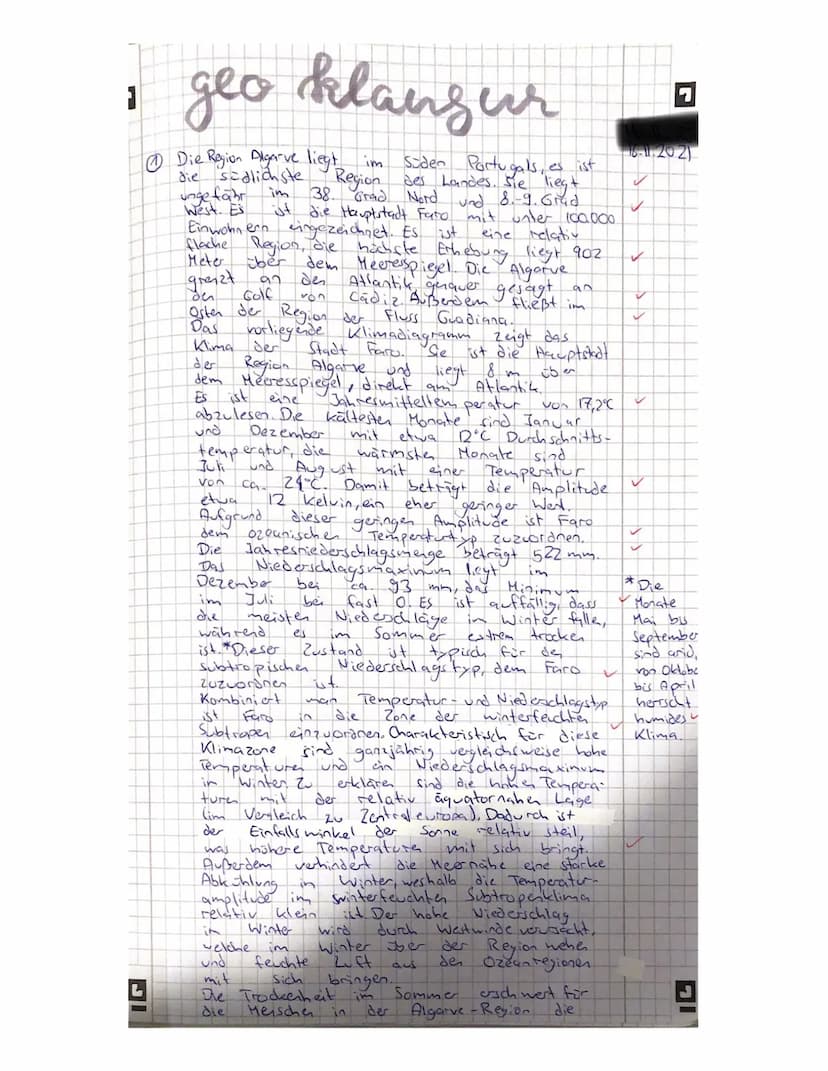 geo klausur
16.11.2021
① Die Region Algarve liegt im Süden Portugals, es ist
die südlichste Region des Landes. Sie liegt
ungefähr im 38. Grad Nord und 8.-9. Grad
West. Es ist die Hauptstadt Faro mit unter 100.000
Einwohnern eingezeichnet. Es ist eine relativ
flache Region, die höchste Erhebung liegt 902
Meter über dem Meeresspiegel. Die Algarve
grenzt an den Atlantik, genauer gesagt an
den Golf von Cádiz. Außerdem fließt im
Osten der Region der Fluss Guadiana.
Das vorliegende Klimadiagramm zeigt das
Klima der Stadt Faro. Sie ist die Hauptstadt
der Region Algarve und liegt 8 m über
dem Meeresspiegel, direkt am Atlantik.
Es ist eine Jahresmitteltemperatur von 17,2°C
abzulesen. Die kältesten Monate sind Januar
und Dezember mit etwa 12°C Durchschnitts-
temperatur, die wärmsten Monate sind
Juli und August mit einer Temperatur
von ca. 24°C. Damit beträgt die Amplitude
etwa 12 Kelvin, ein eher geringer Wert.
Aufgrund dieser geringen Amplitude ist Faro
dem ozeanischen Temperaturtyp zuzuordnen.
Die Jahresniederschlagsmenge beträgt 522 mm.
Das Niederschlagsmaximum liegt im
Dezember bei ca. 93 mm, das Minimum
im Juli bei fast 0. Es ist auffällig, dass
die meisten Niederschläge im Winter fallen,
während es im Sommer extrem trocken
ist.* Dieser Zustand ist typisch für den
subtropischen Niederschlagstyp, dem Faro
zuzuordnen ist.
Kombiniert man Temperatur- und Niederschlagstyp
ist Faro in die Zone der winterfeuchten
Subtropen einzuordnen. Charakteristisch für diese
Klimazone sind ganzjährig vergleichsweise hohe
Temperaturen und ein Niederschlagsmaximum
im Winter. Zu erklären sind die hohen Tempera-
turen mit der relativ äquatornahen Lage
(im Vergleich zu Zentraleuropa). Dadurch ist
der Einfallswinkel der Sonne relativ steil,
was höhere Temperaturen mit sich bringt.
Außerdem verhindert die Meernähe eine starke
Abkühlung im Winter, weshalb die Temperatur-
amplitude im winterfeuchten Subtropenklima
relativ klein ist. Der hohe Niederschlag
im Winter wird durch Westwinde verursacht,
welche im Winter über der Region wehen
und feuchte Luft aus den Ozeanregionen
mit sich bringen.
Die Trockenheit im Sommer erschwert für
die Menschen in der Algarve-Region die
* Die
Monate
Mai bis
September
sind arid,
von Oktobe
bis April
herrscht
humides
Klima.